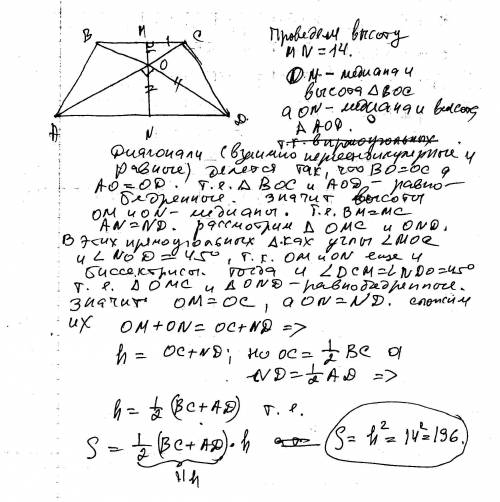 B M C
1
O
2 4
A N D
Проведём высоту
MN=14.
ON-медиана и
высота ΔBOC
а ON-медиана и высота
ΔAOD.
т.к. в прямоугольных
Диагонали (взаимно перпендикулярные и
равные) делятся так, что BO=OC а
AO=OD. т.е. Δ BOC и AOD - равно-
бедренные. значит высоты
OM и ON - медианы. т.е. BM=MC
AN=ND. рассмотрим Δ OMC и OND.
В этих прямоугольных Δках углы ∠MOC
и ∠NOD=45°, т.к. OM и ON еще и
биссектрисы. тогда и ∠OCM=∠NDO=45°
т.е. Δ OMC и Δ OND-равнобедренные.
значит OM=OC, а ON=ND. сложим
их OM+ON=OC+ND =>
h = OC+ND; но OC=1/2 BC а
ND=1/2 AD =>
h=1/2 (BC+AD) т.е.
S=1/2 (BC+AD)·h S=h²=14²=196.
h